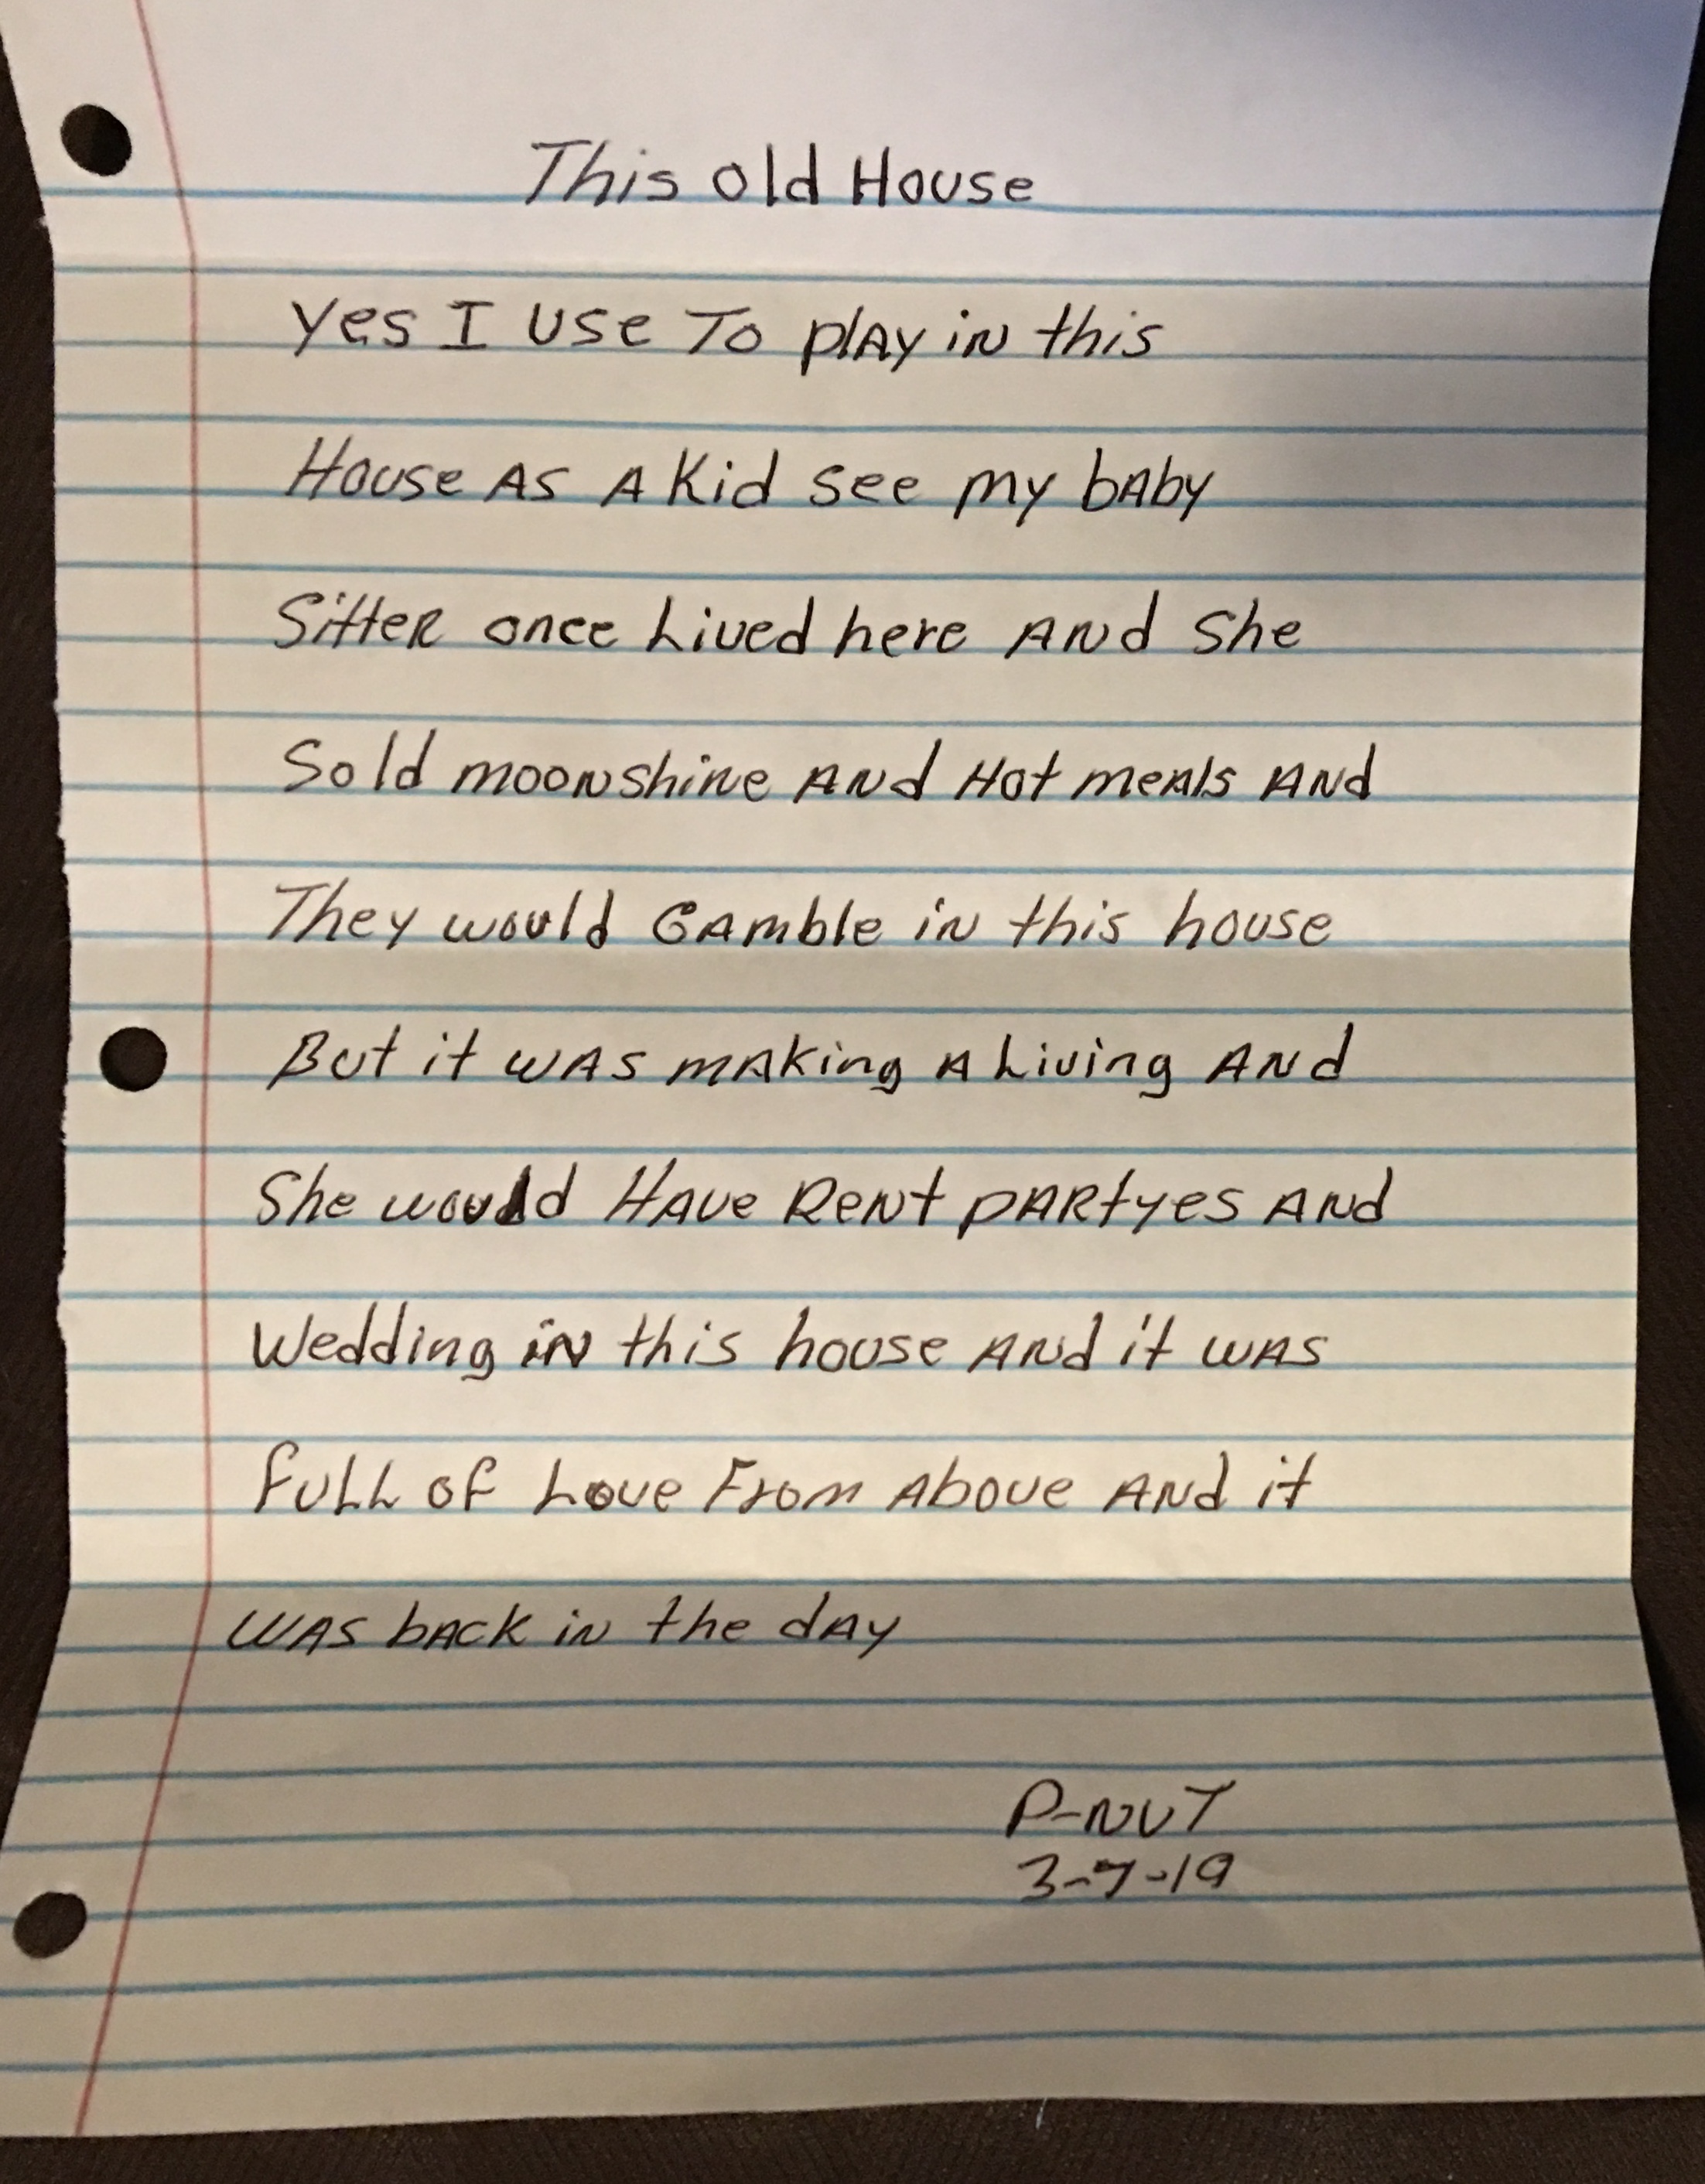 This Old House
Yes I Use To Play in this
House As A Kid see my baby
Sitter once Lived here And She
Sold moonshine And Hot meals And
They would Gamble in this house
But it was making A Living And
She would Have Rent partyes And
Wedding in this house And it was
full of Love From Above And it
was back in the day
P-NUT
3-7-19